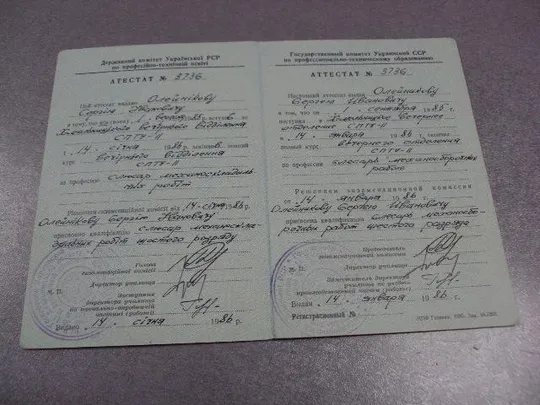 Державний комітет Української РСР
по професійно-технічній освіті
АТЕСТАТ № 3736
Цей атестат видано Олейнікову
Сергію Івановичу
в тому, що він 1 19 85 р. вступив
вечірнє відділення
СПТУ-11
і 14 січня 1986 р. закінчив повний
курс вечірнього відділення
СПТУ-11
за професією слюсар механоскладаль-
них робіт
Рішенням екзаменаційної комісії від 14 січня 1986 р.
Олейнікову Сергію Івановичу
присвоєно кваліфікацію слюсар механоскла-
дальних робіт шостого розряду
Голова
екзаменаційної комісії
М. П.
Директор училища
Заступник
директора училища
по навчально-виробничій
частині (роботі)
Видано 14 січня 1986 р.
Государственный комитет Украинской ССР
по профессионально-техническому образованию
АТТЕСТАТ № 3736
Настоящий аттестат выдан Олейникову
Сергею Ивановичу
в том, что он 1 сентября 1985 г.
поступил в вечернее
отделение СПТУ-11
и 14 января 1986 г. окончил полный
курс вечернего отделения
СПТУ-11
по профессии слесарь механосборочных
работ
Решением экзаменационной комиссии
от 14 января 1986 г.
Олейникову Сергею Ивановичу
присвоена квалификация слесарь механосбо-
рочных работ шестого разряда
Председатель
экзаменационной комиссии
Директор училища
М. П.
Заместитель директора
училища по учебно-
производственной части (работе)
Выдан 14 января 1986 г.
Регистрационный №